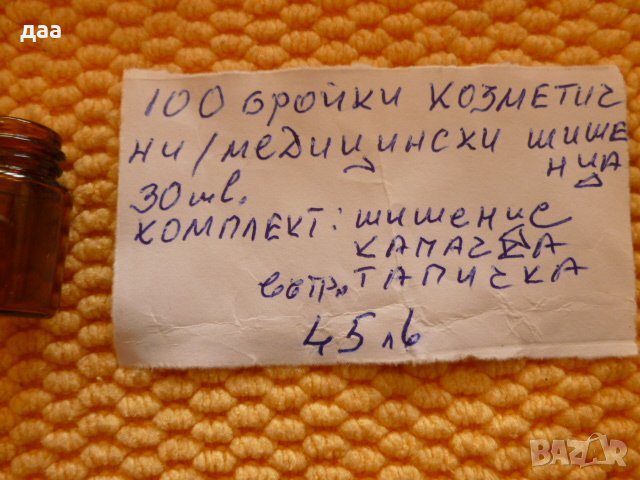 даа
100 бройки козметич
ни/медицински шише
нца
30 мл.
комплект: шишенце
капачка
вътр. тапичка
45 лв
BAZAR